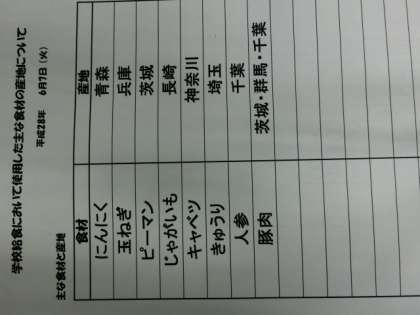 学校給食において使用した主な食材の産地について
平成28年 6月7日（火）
主な食材と産地
食材 産地
にんにく 青森
玉ねぎ 兵庫
ピーマン 茨城
じゃがいも 長崎
キャベツ 神奈川
きゅうり 埼玉
人参 千葉
豚肉 茨城・群馬・千葉